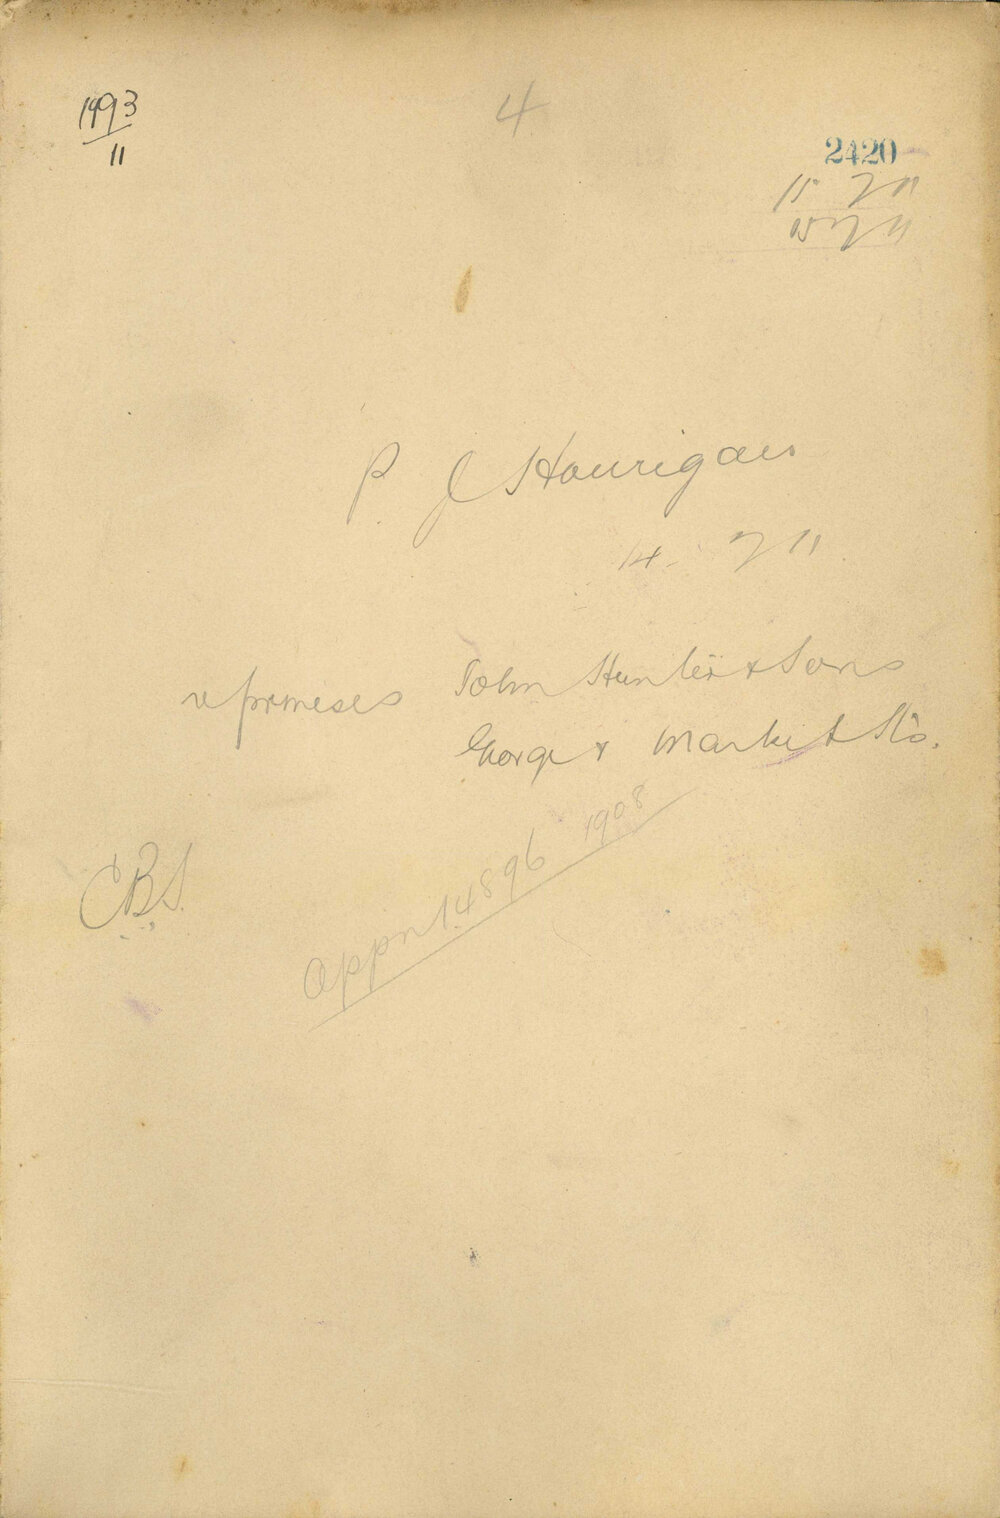 1493
11
4
2420
15 7 11
15 7 11
P. J Hourigan
14. 7 11
re premeses John Hunter & Sons
George & Market Sts.
CBS.
Appn 14896 1908